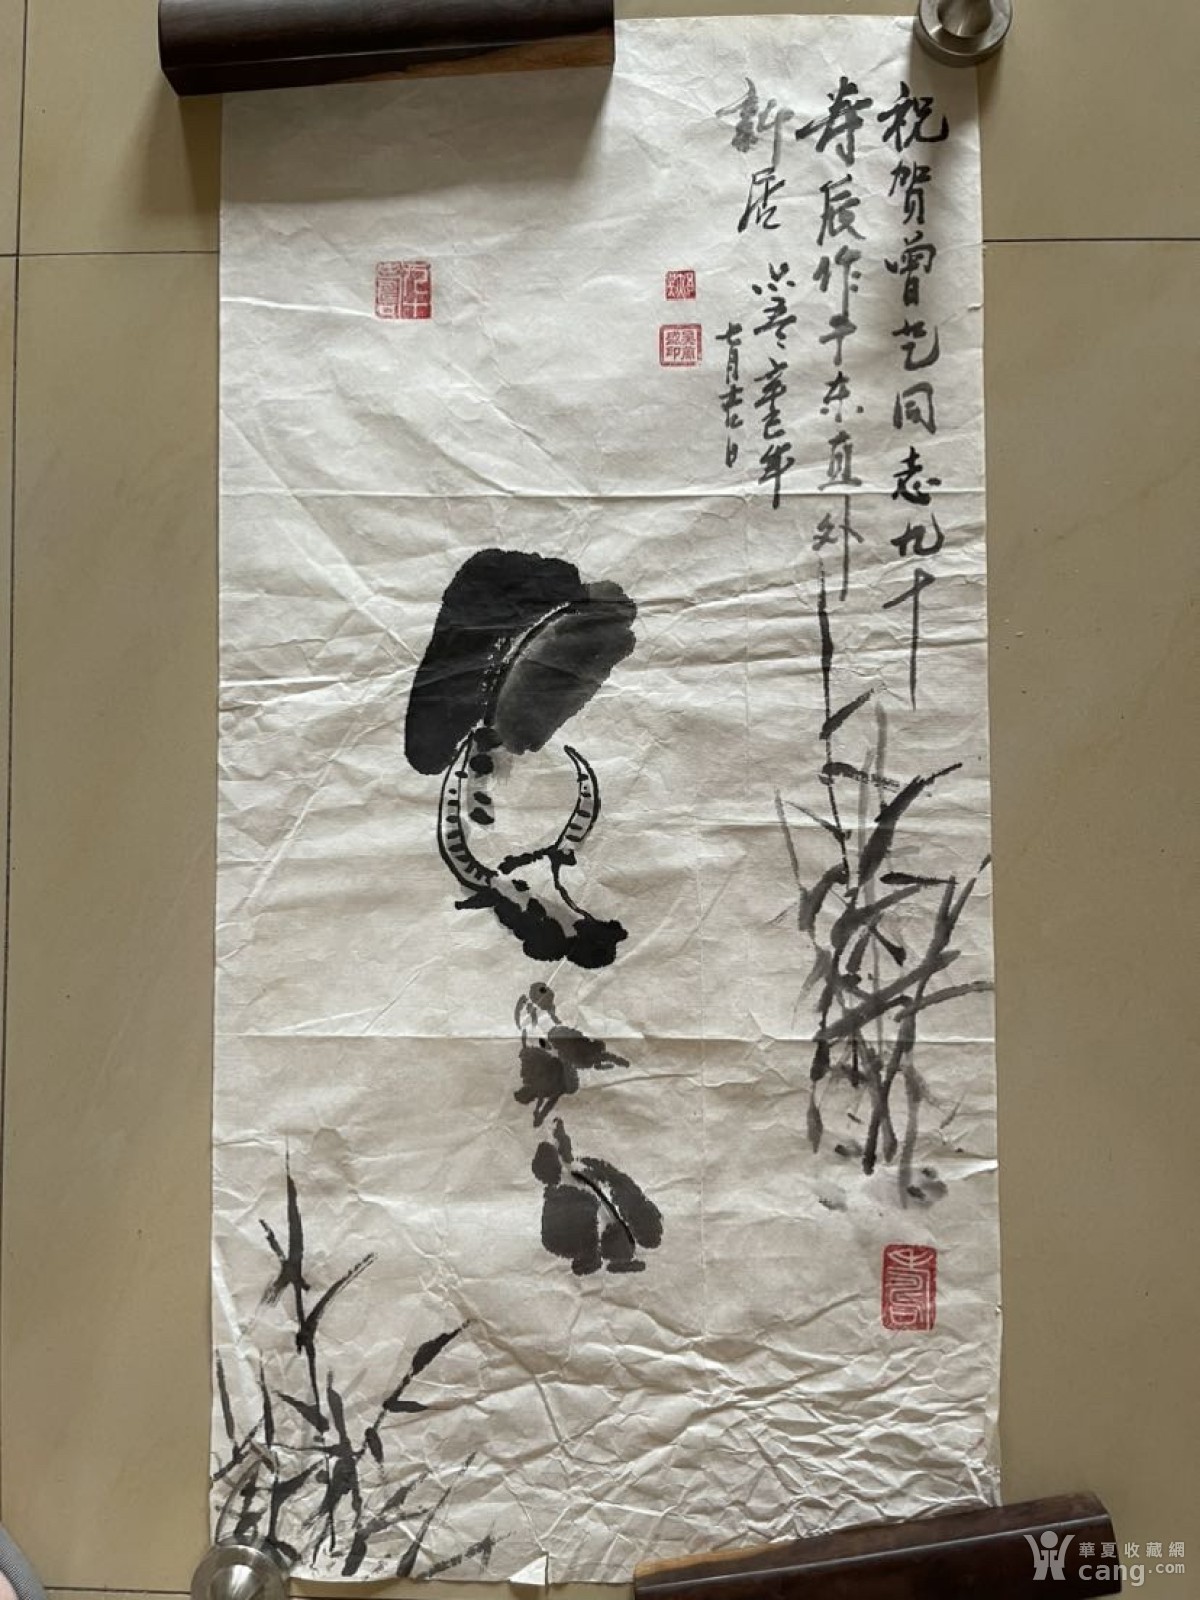 祝贺曾艺同志九十
寿辰作于东直外
新居
辛巳年
七月
日
華夏收藏網
cang.com